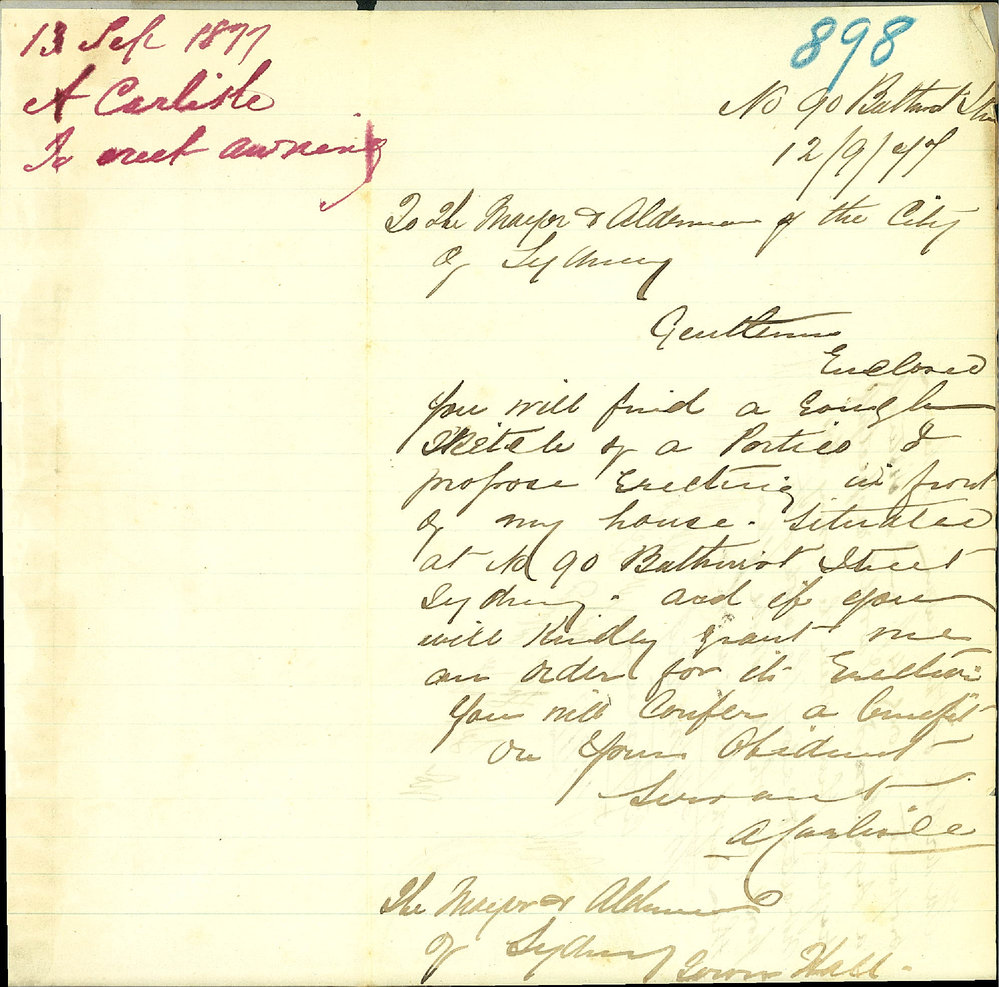 13 Sep 1877
A Carlisle
To erect awning
898
No 90 Bathurst Stre
12/9/77
To The Mayor & Aldermen of the City
of Sydney
Gentlemen
Enclosed
you will find a rough
Sketch of a Portico I
propose Erecting in front
of my house. Situated
at No 90 Bathurst Street
Sydney. and if you
will Kindly grant me
an order for its Erection
You will Confer a benefit
on Your Obedient
Servant
A Carlisle
The Mayor & Aldermen
of Sydney
Town Hall.